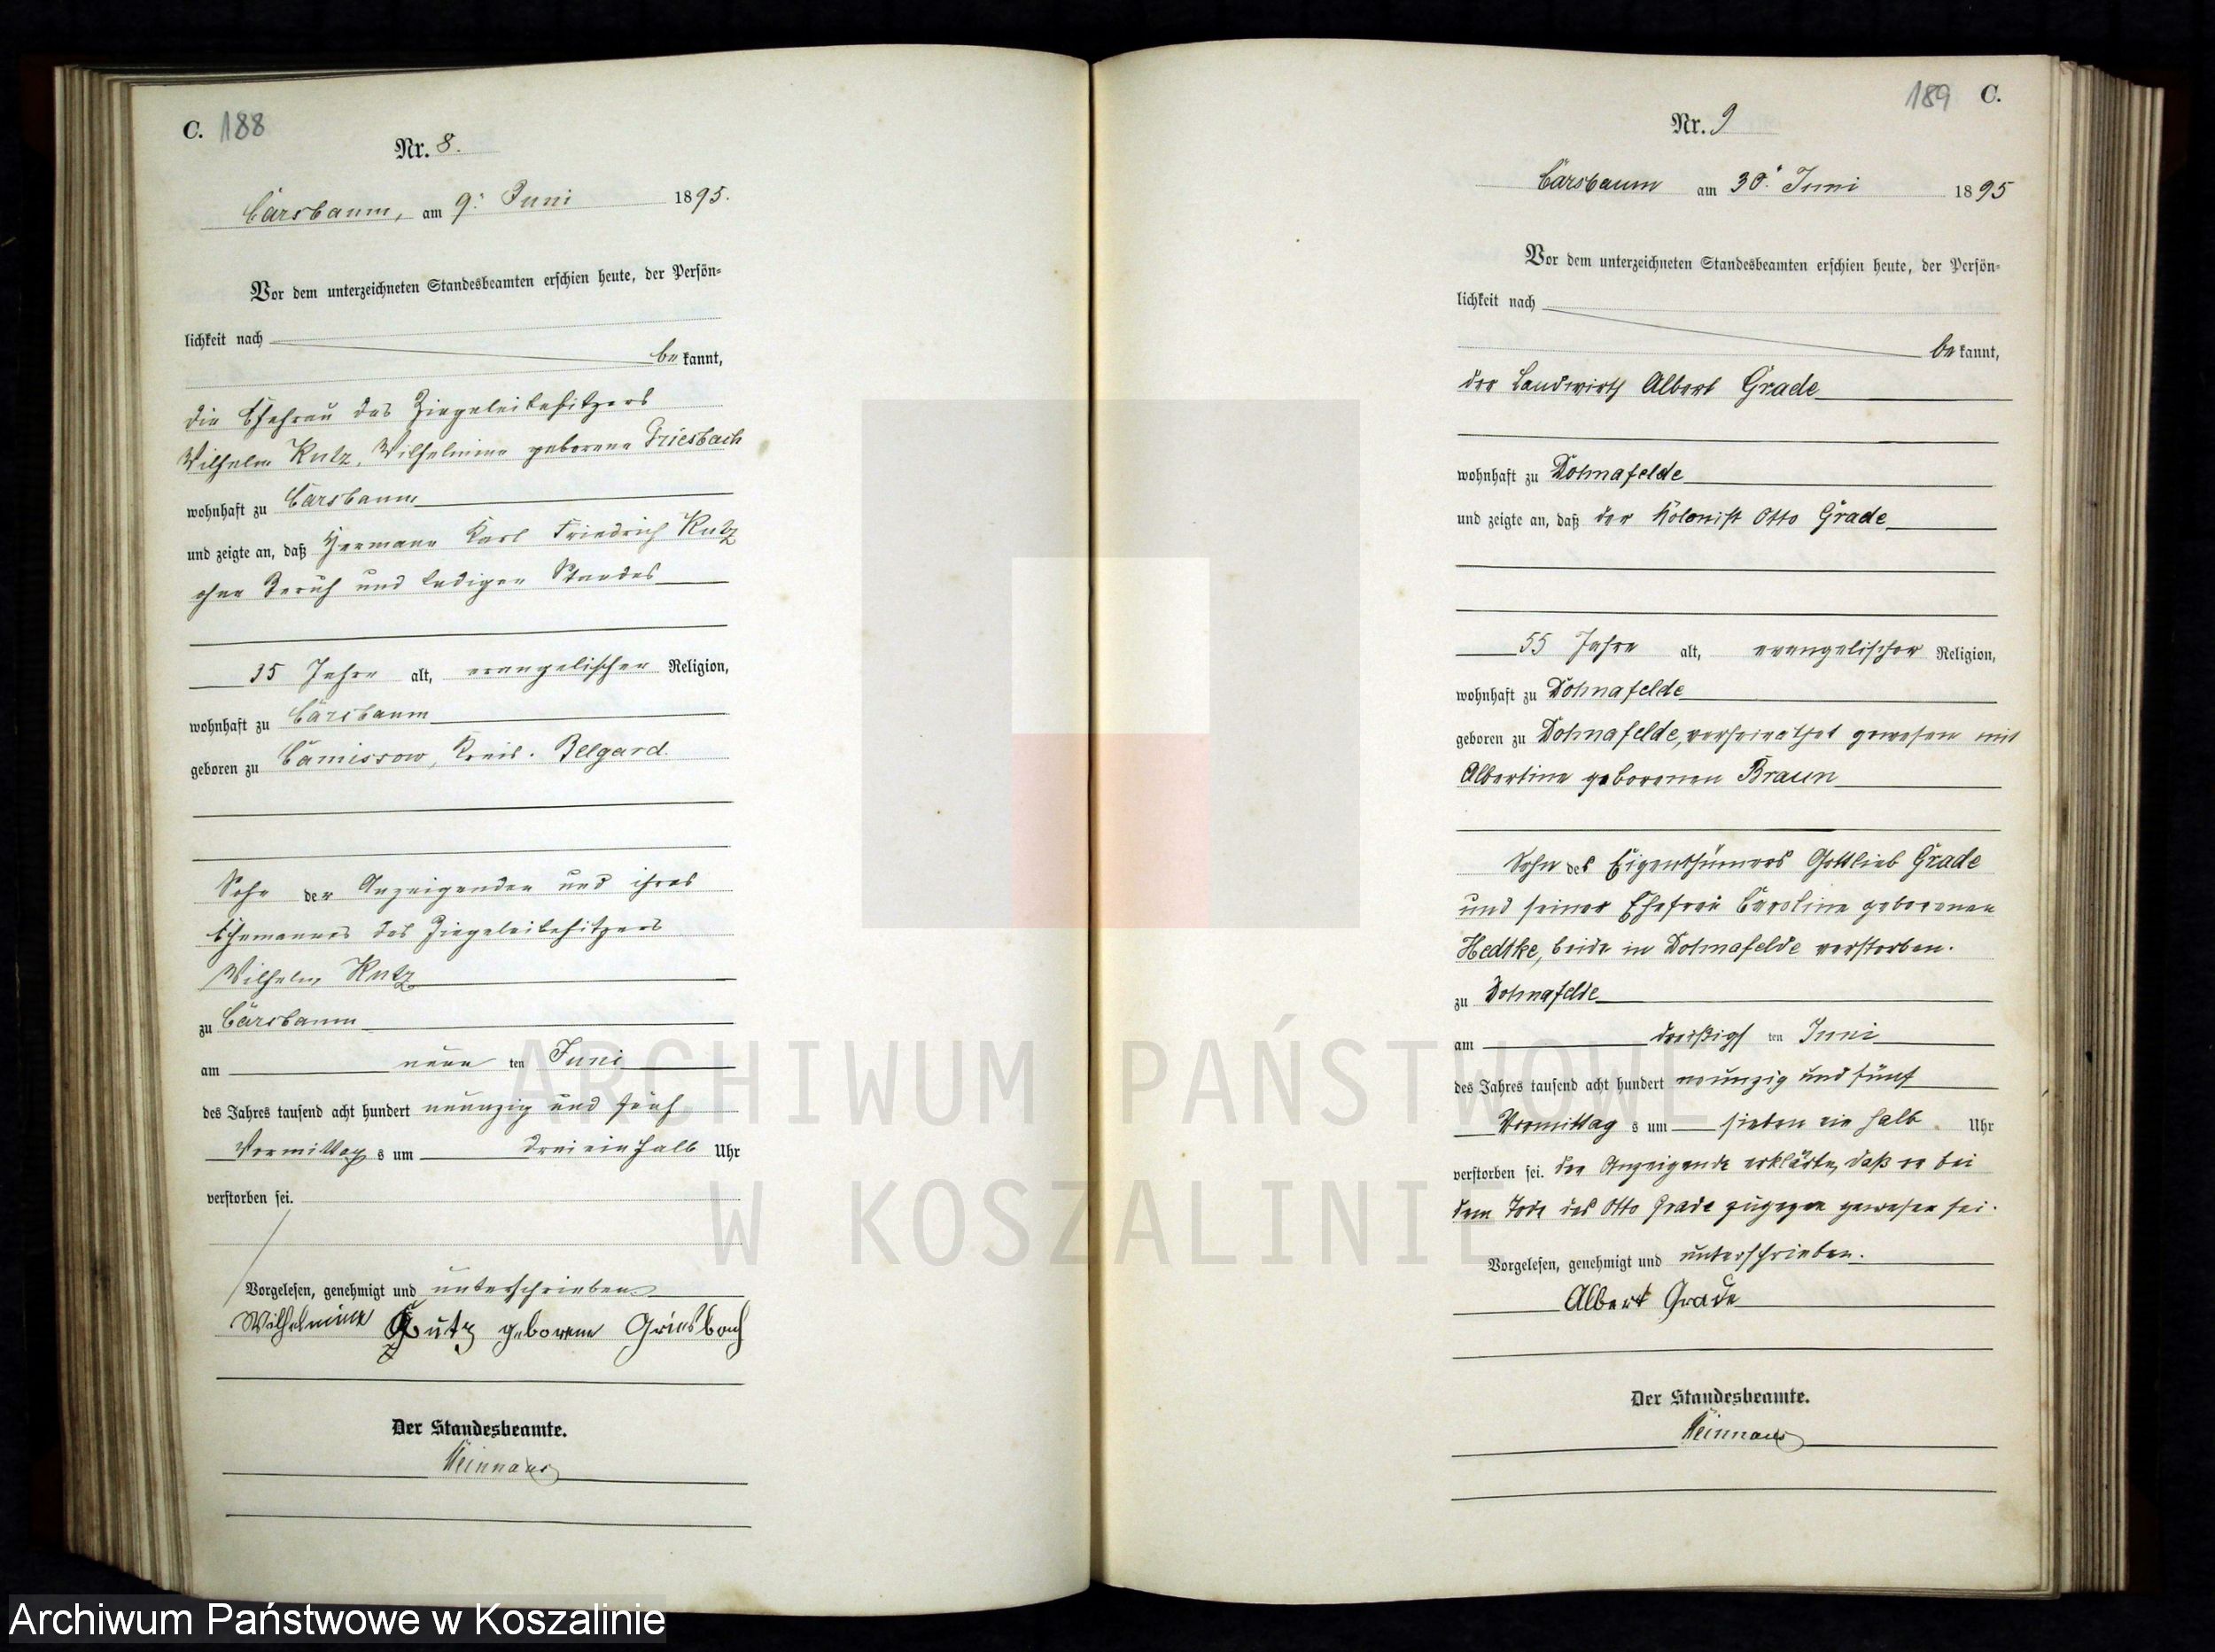 C. 188
Nr. 8.
Carsbaum, am 9. Juni 1895.
Vor dem unterzeichneten Standesbeamten erschien heute, der Persön=
lichkeit nach
be kannt,
die Ehefrau des Ziegeleibesitzers
Wilhelm Rutz, Wilhelmine geborene Griesbach
wohnhaft zu Carsbaum
und zeigte an, daß Hermann Karl Friedrich Rutz
ohne Beruf und ledigen Standes
35 Jahre alt, evangelischer Religion,
wohnhaft zu Carsbaum
geboren zu Camissow, Kreis Belgard.
Sohn der Anzeigenden und ihres
Ehemannes des Ziegeleibesitzers
Wilhelm Rutz
zu Carsbaum
am neun ten Juni
des Jahres tausend acht hundert neunzig und fünf
Vormittag s um drei ein halb Uhr
verstorben sei.
Vorgelesen, genehmigt und unterschrieben
Wilhelmine Rutz geborene Griesbach
Der Standesbeamte.
189 C.
Nr. 9
Carsbaum am 30. Juni 1895
Vor dem unterzeichneten Standesbeamten erschien heute, der Persön=
lichkeit nach
be kannt,
der Landwirth Albert Grade
wohnhaft zu Dohnafelde
und zeigte an, daß der Kolonist Otto Grade
55 Jahre alt, evangelischer Religion,
wohnhaft zu Dohnafelde
geboren zu Dohnafelde, verheirathet gewesen mit
Albertine geborenen Braun
Sohn des Eigenthümers Gottlieb Grade
und seiner Ehefrau Caroline geborenen
Hedtke, beide in Dohnafelde verstorben.
zu Dohnafelde
am dreißigs ten Juni
des Jahres tausend acht hundert neunzig und fünf
Vormittag s um sieben ein halb Uhr
verstorben sei. Der Anzeigende erklärte, daß er bei
dem Tode des Otto Grade zugegen gewesen sei.
Vorgelesen, genehmigt und unterschrieben.
Albert Grade
Der Standesbeamte.
ARCHIWUM PAŃSTWOWE
W KOSZALINIE
Archiwum Państwowe w Koszalinie